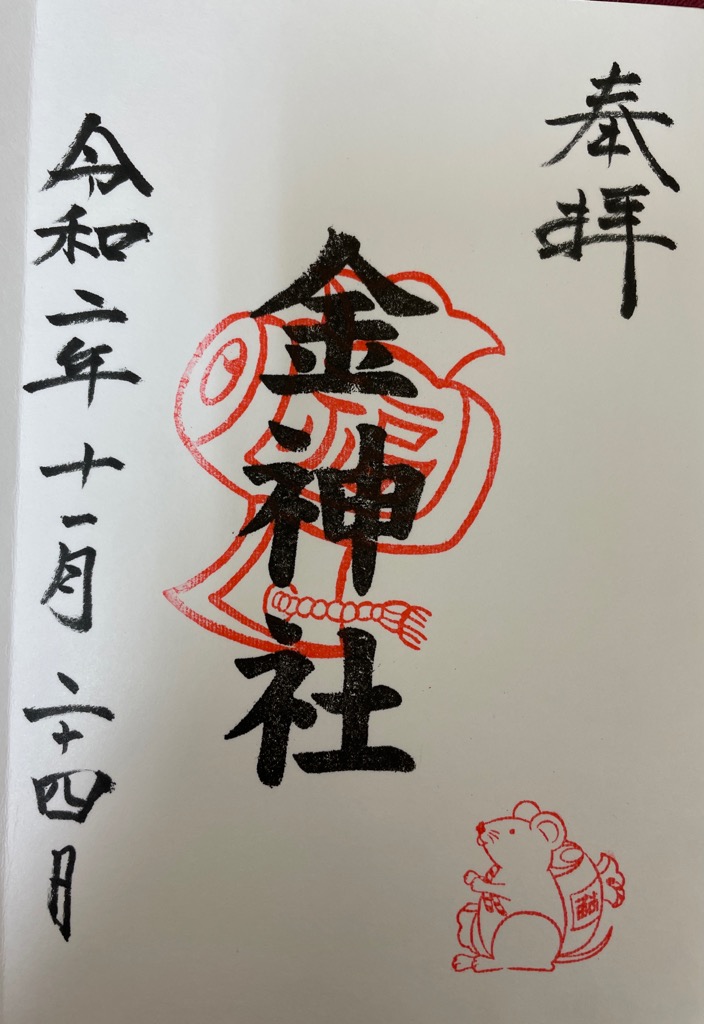 奉拝
金神社
令和二年十一月二十四日